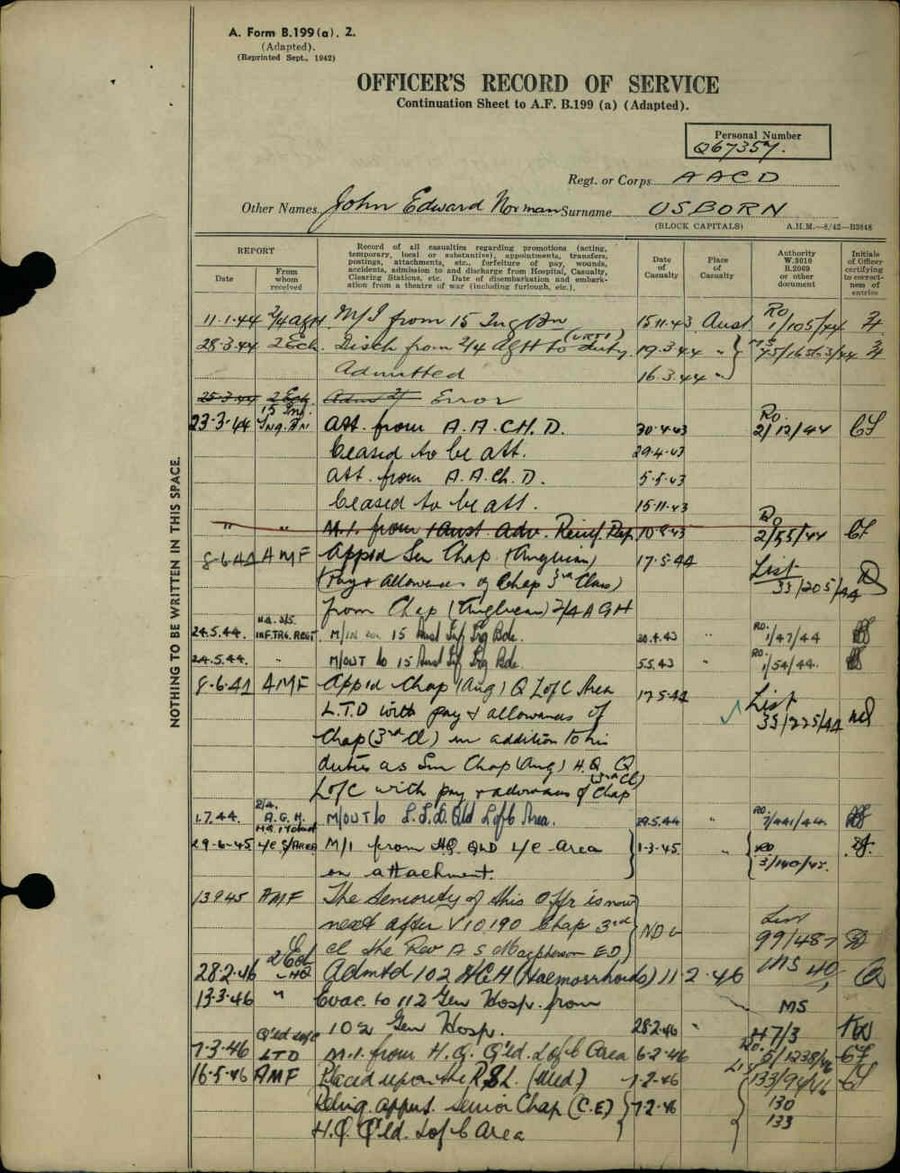 A. Form B.199(a). 2.
(Adapted).
(Reprinted Sept., 1942)
OFFICER'S RECORD OF SERVICE
Continuation Sheet to A.F. B.199 (a) (Adapted).
Personal Number
Q67357.
Regt. or Corps AACD
Other Names John Edward Norman Surname OSBORN
(BLOCK CAPITALS) A.H.M.—8/42—B3848
REPORT
Date
From whom received
Record of all casualties regarding promotions (acting,
temporary, local or substantive), appointments, transfers,
postings, attachments, etc., forfeiture of pay, wounds,
accidents, admission to and discharge from Hospital, Casualty,
Clearing Stations, etc. Date of disembarkation and embark-
ation from a theatre of war (including furlough, etc.).
Date of Casualty
Place of Casualty
Authority W.3010 B.2069 or other document
Initials of Officer certifying to correctness of entries
NOTHING TO BE WRITTEN IN THIS SPACE.
11.1.44 2/4 AGH M/I from 15 Ing Bn 15 11.43 Aust RO 1/105/44
28.3.44 2 Ech. Disch from 2/4 AGH to duty (URTI) 19.3.44 "
Admitted 16.3.44 "
25.3.44 2 Ech Error
23-3-44 15 Ing. Bn Att. from A.A.CH.D. 30.4.43 Ro. 2/12/44
Ceased to be att. 29.4.43
Att. from A.A.Ch.D. 5.5.43
Ceased to be att. 15.11.43
" " M.I. from 1 Aust. Adv. Reinf. Dep 10.9.43 Ro 2/55/44
8.6.44 AMF Appd Sen Chap (Anglican) 17.5.44 List 33/205/44
(Pay & allowances of Chap 3rd Class)
from Chap (Anglican) 2/4 AGH
24.5.44. INF.TRG.REGT. M/IN 15 Aust Inf Trg Bde. 30.4.43 " RO. 1/47/44
24.5.44. " M/OUT to 15 Aust Inf Trg Bde. 5.5.43 " RO. 1/54/44.
8-6.44 AMF Appd Chap (Ang) Q LofC Area 17.5.44 List 33/225/44
L.T.D with pay & allowances of
Chap (3rd Cl) in addition to his
duties as Sen Chap (Ang) H.Q. Q
LofC with pay & allowances of Chap (3rd Cl)
1.7.44. 2/4. A.G.H. M/OUT to Qld LofC Area. 29.5.44 " RO. 7/441/44
29-6-45 M/I from HQ. QLD L/C Area 1-3-45. " RO 3/140/45.
on attachment.
13.9.45 AMF The Seniority of this Offr is now
next after V10190 Chap 3rd List
cl the Rev A S Macpherson ED) 99/487
28.2.46 2 Ech HQ Admtd 102 AGH (Haemorrhoids) 11 2.46 MS 40
13.3.46 " Evac. to 112 Gen Hosp. from MS
102 Gen Hosp. 28.2.46 " H7/3
7-3-46 Q'ld LofC LTD M.I. from H.Q. Q'ld. LofC Area 6-2-46 Ro. 5/1238/46
16-5-46 AMF Placed upon the R.S.L. (Med) 7-2-46 List 133/94/46
Relinq. appnt. Senior Chap (C.E) 7-2-46 130
H.Q. Q'ld. LofC Area 133